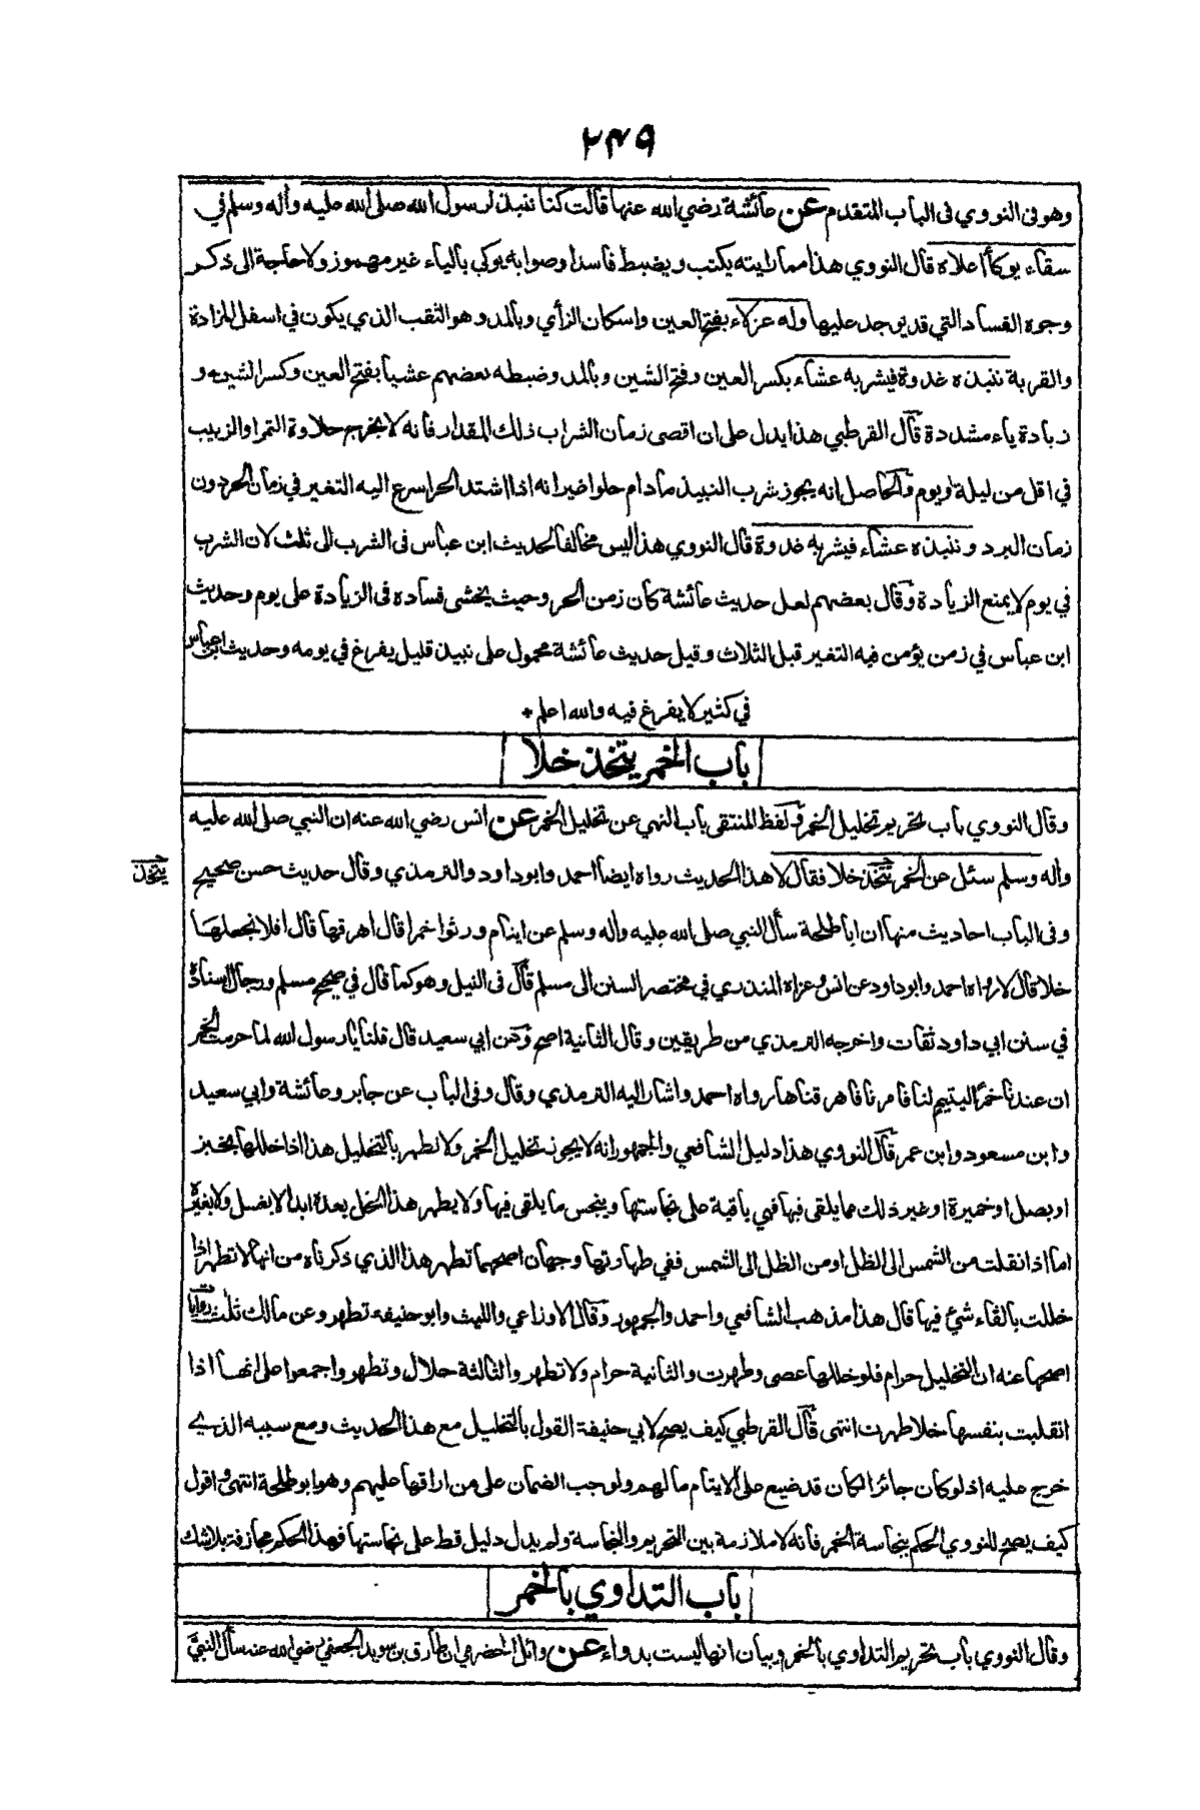 ٢٤٩
وهو في النووي في الباب المتقدم عن عائشة رضي الله عنها قالت كنا ننبذ لرسول الله صلى الله عليه وأله وسلم في
سقاء يوكأ اعلاه قال النووي هذا مما رايته يكتب ويضبط فاسدا وصوابه يوكي بالياء غير مهموز ولا حاجة الى ذكر
وجوه الفساد التي قد يوجد عليها وله عزلاء بفتح العين واسكان الزأي وبالمد وهو الثقب الذي يكون في اسفل المزادة
والقربة ننبذه غدوة فيشربه عشاء بكسر العين وفتح الشين وبالمد وضبطه بعضهم عشيا بفتح العين وكسر الشين و
زيادة ياء مشددة قال القرطبي هذا يدل على ان اقصى زمان الشراب ذلك المقدار فانه لا يخرج حلاوة التمر او الزبيب
في اقل من ليلة او يوم والحاصل انه يجوز شرب النبيذ ما دام حلوا غير انه اذا اشتد الحر اسرع اليه التغير في زمان الحر دون
زمان البرد وننبذه عشاء فيشربه غدوة قال النووي هذا ليس مخالفا لحديث ابن عباس في الشرب الى ثلث لان الشرب
في يوم لا يمنع الزيادة وقال بعضهم لعل حديث عائشة كان زمن الحر وحيث يخشى فساده في الزيادة على يوم وحديث
ابن عباس في زمن يؤمن فيه التغير قبل الثلاث وقيل حديث عائشة محمول على نبيذ قليل يفرغ في يومه وحديث ابن عباس
في كثير لا يفرغ فيه والله اعلم +
باب الخمر يتخذ خلا
وقال النووي باب تحريم تخليل الخمر ولفظ المنتقى باب النهي عن تخليل الخمر عن انس رضي الله عنه ان النبي صلى الله عليه
وأله وسلم سئل عن الخمر تتخذ خلا فقال لا هذا الحديث رواه ايضا احمد وابوداود والترمذي وقال حديث حسن صحيح
يتخذ
وفي الباب احاديث منها ان ابا طلحة سأل النبي صلى الله عليه وأله وسلم عن ايتام ورثوا خمرا قال اهرقها قال افلا نجعلها
خلا قال لا رواه احمد وابوداود عن انس وعزاه المنذري في مختصر السنن الى مسلم قال في النيل وهو كما قال في صحيح مسلم ورجال اسناده
في سنن ابي داود ثقات واخرجه الترمذي من طريقين وقال الثانية اصح وعن ابي سعيد قال قلنا يا رسول الله لما حرمت الخمر
ان عندنا خمرا ليتيم لنا فامرنا فاهرقناها رواه احمد واشار اليه الترمذي وقال وفي الباب عن جابر وعائشة وابي سعيد
وابن مسعود وابن عمر قال النووي هذا دليل الشافعي والجمهور انه لا يجوز تخليل الخمر ولا تطهر بالتخليل هذا اذا خللها بخبز
او بصل او خميرة او غير ذلك مما يلقى فيها فهي باقية على نجاستها وينجس ما يلقى فيها ولا يطهر هذا الخل بعده ابدا لا بغسل ولا بغيره
اما اذا نقلت من الشمس الى الظل او من الظل الى الشمس ففي طهارتها وجهان اصحهما تطهر هذا الذي ذكرناه من انها لا تطهر اذا
خللت بالقاء شئ فيها قال هذا مذهب الشافعي واحمد والجمهور وقال الاوزاعي والليث وابو حنيفة تطهر وعن مالك ثلث روايات
اصحها عنه ان التخليل حرام فلو خللها عصى وطهرت والثانية حرام ولا تطهر والثالثة حلال وتطهر واجمعوا على انها اذا
انقلبت بنفسها خلا طهرت انتهى قال القرطبي كيف يصح لابي حنيفة القول بالتخليل مع هذا الحديث ومع سببه الذي
خرج عليه اذ لو كان جائزا لكان قد ضيع على الايتام مالهم ولوجب الضمان على من اراقها عليهم وهو ابو طلحة انتهى واقول
كيف يصح للنووي الحكم بنجاسة الخمر فانه لا ملازمة بين التحريم والنجاسة ولم يدل دليل قط على نجاستها فهذا الحكم مجازفة بلا شك
باب التداوي بالخمر
وقال النووي باب تحريم التداوي بالخمر وبيان انها ليست بدواء عن وائل الحضرمي ان طارق بن سويد الجعفي رضي الله عنه سأل النبي